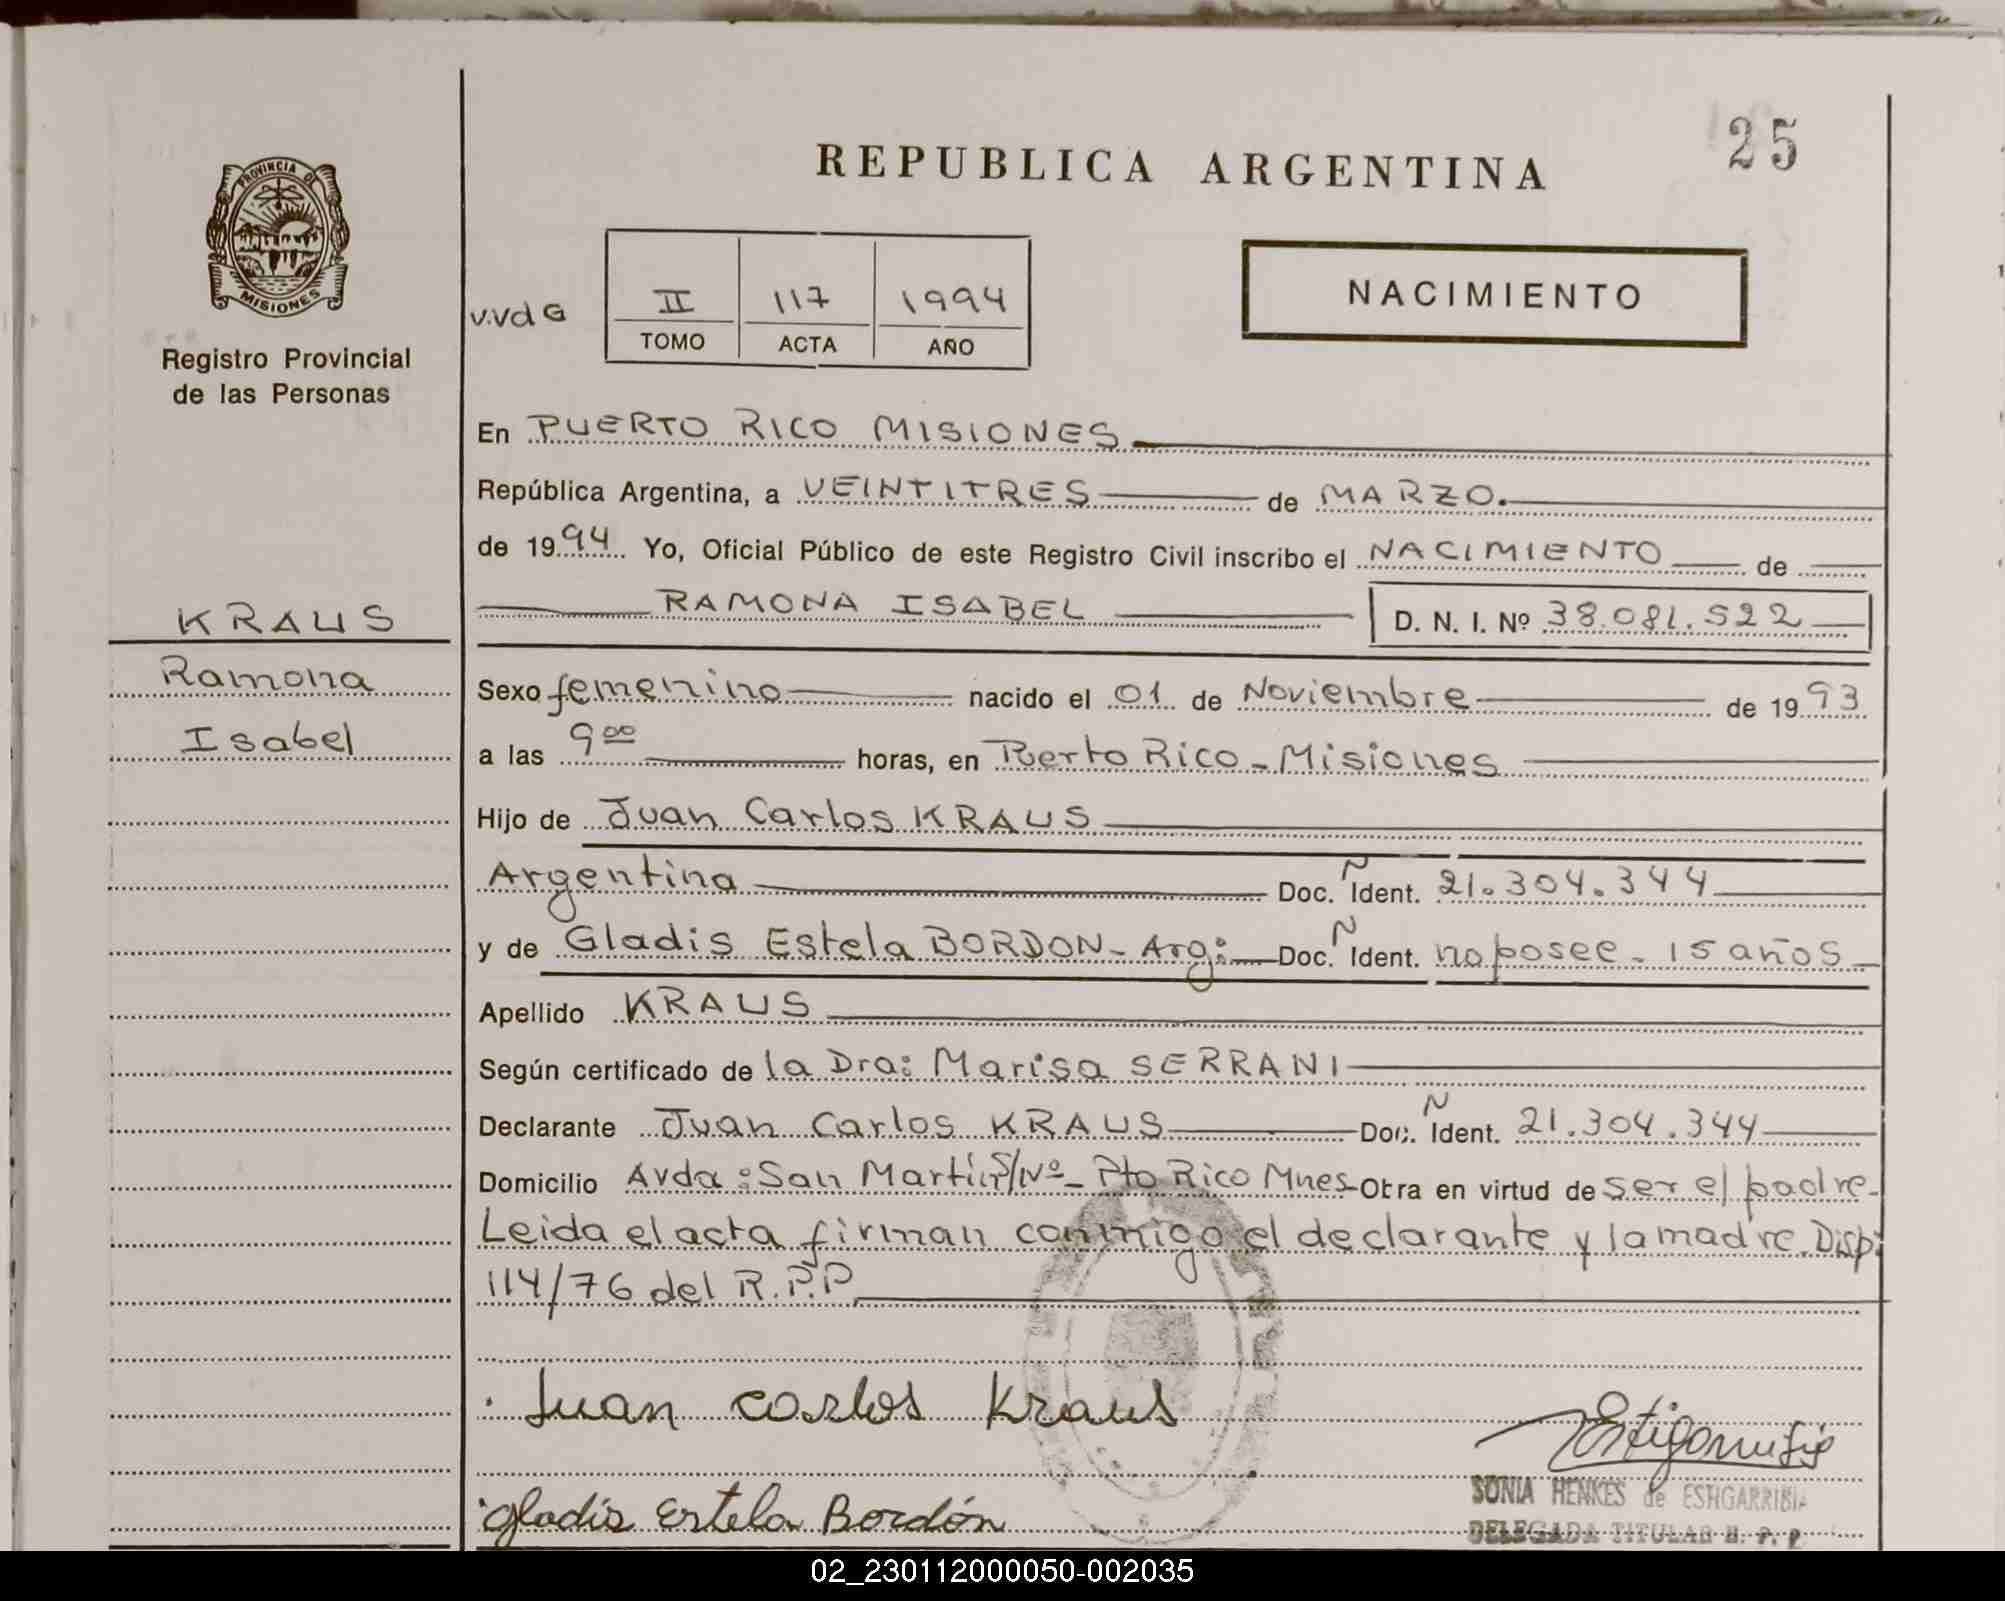 25
REPUBLICA ARGENTINA
PROVINCIA DE
MISIONES
Registro Provincial
de las Personas
v.vdG
II 117 1994
TOMO ACTA AÑO
NACIMIENTO
En PUERTO RICO MISIONES
República Argentina, a VEINTITRES de MARZO.
de 1994 Yo, Oficial Público de este Registro Civil inscribo el NACIMIENTO de
RAMONA ISABEL D. N. I. Nº 38.081.522
KRAUS
Ramona
Isabel
Sexo femenino nacido el 01 de Noviembre de 1993
a las 9 00 horas, en Puerto Rico - Misiones
Hijo de Juan Carlos KRAUS
Argentina Doc. Ñ Ident. 21.304.344
y de Gladis Estela BORDON - Arg: Doc. Ñ Ident. no posee - 15 años
Apellido KRAUS
Según certificado de la Dra: Marisa SERRANI
Declarante Juan Carlos KRAUS Doc. Ñ Ident. 21.304.344
Domicilio Avda: San Martín S/Nº - Pto Rico Mnes Obra en virtud de ser el padre -
Leida el acta firman conmigo el declarante y la madre. Disp:
114/76 del R.P.P
Juan Carlos Kraus
Gladis Estela Bordón
SONIA HENKES de ESTIGARRIBIA
DELEGADA TITULAR R. P. P.
02_230112000050-002035